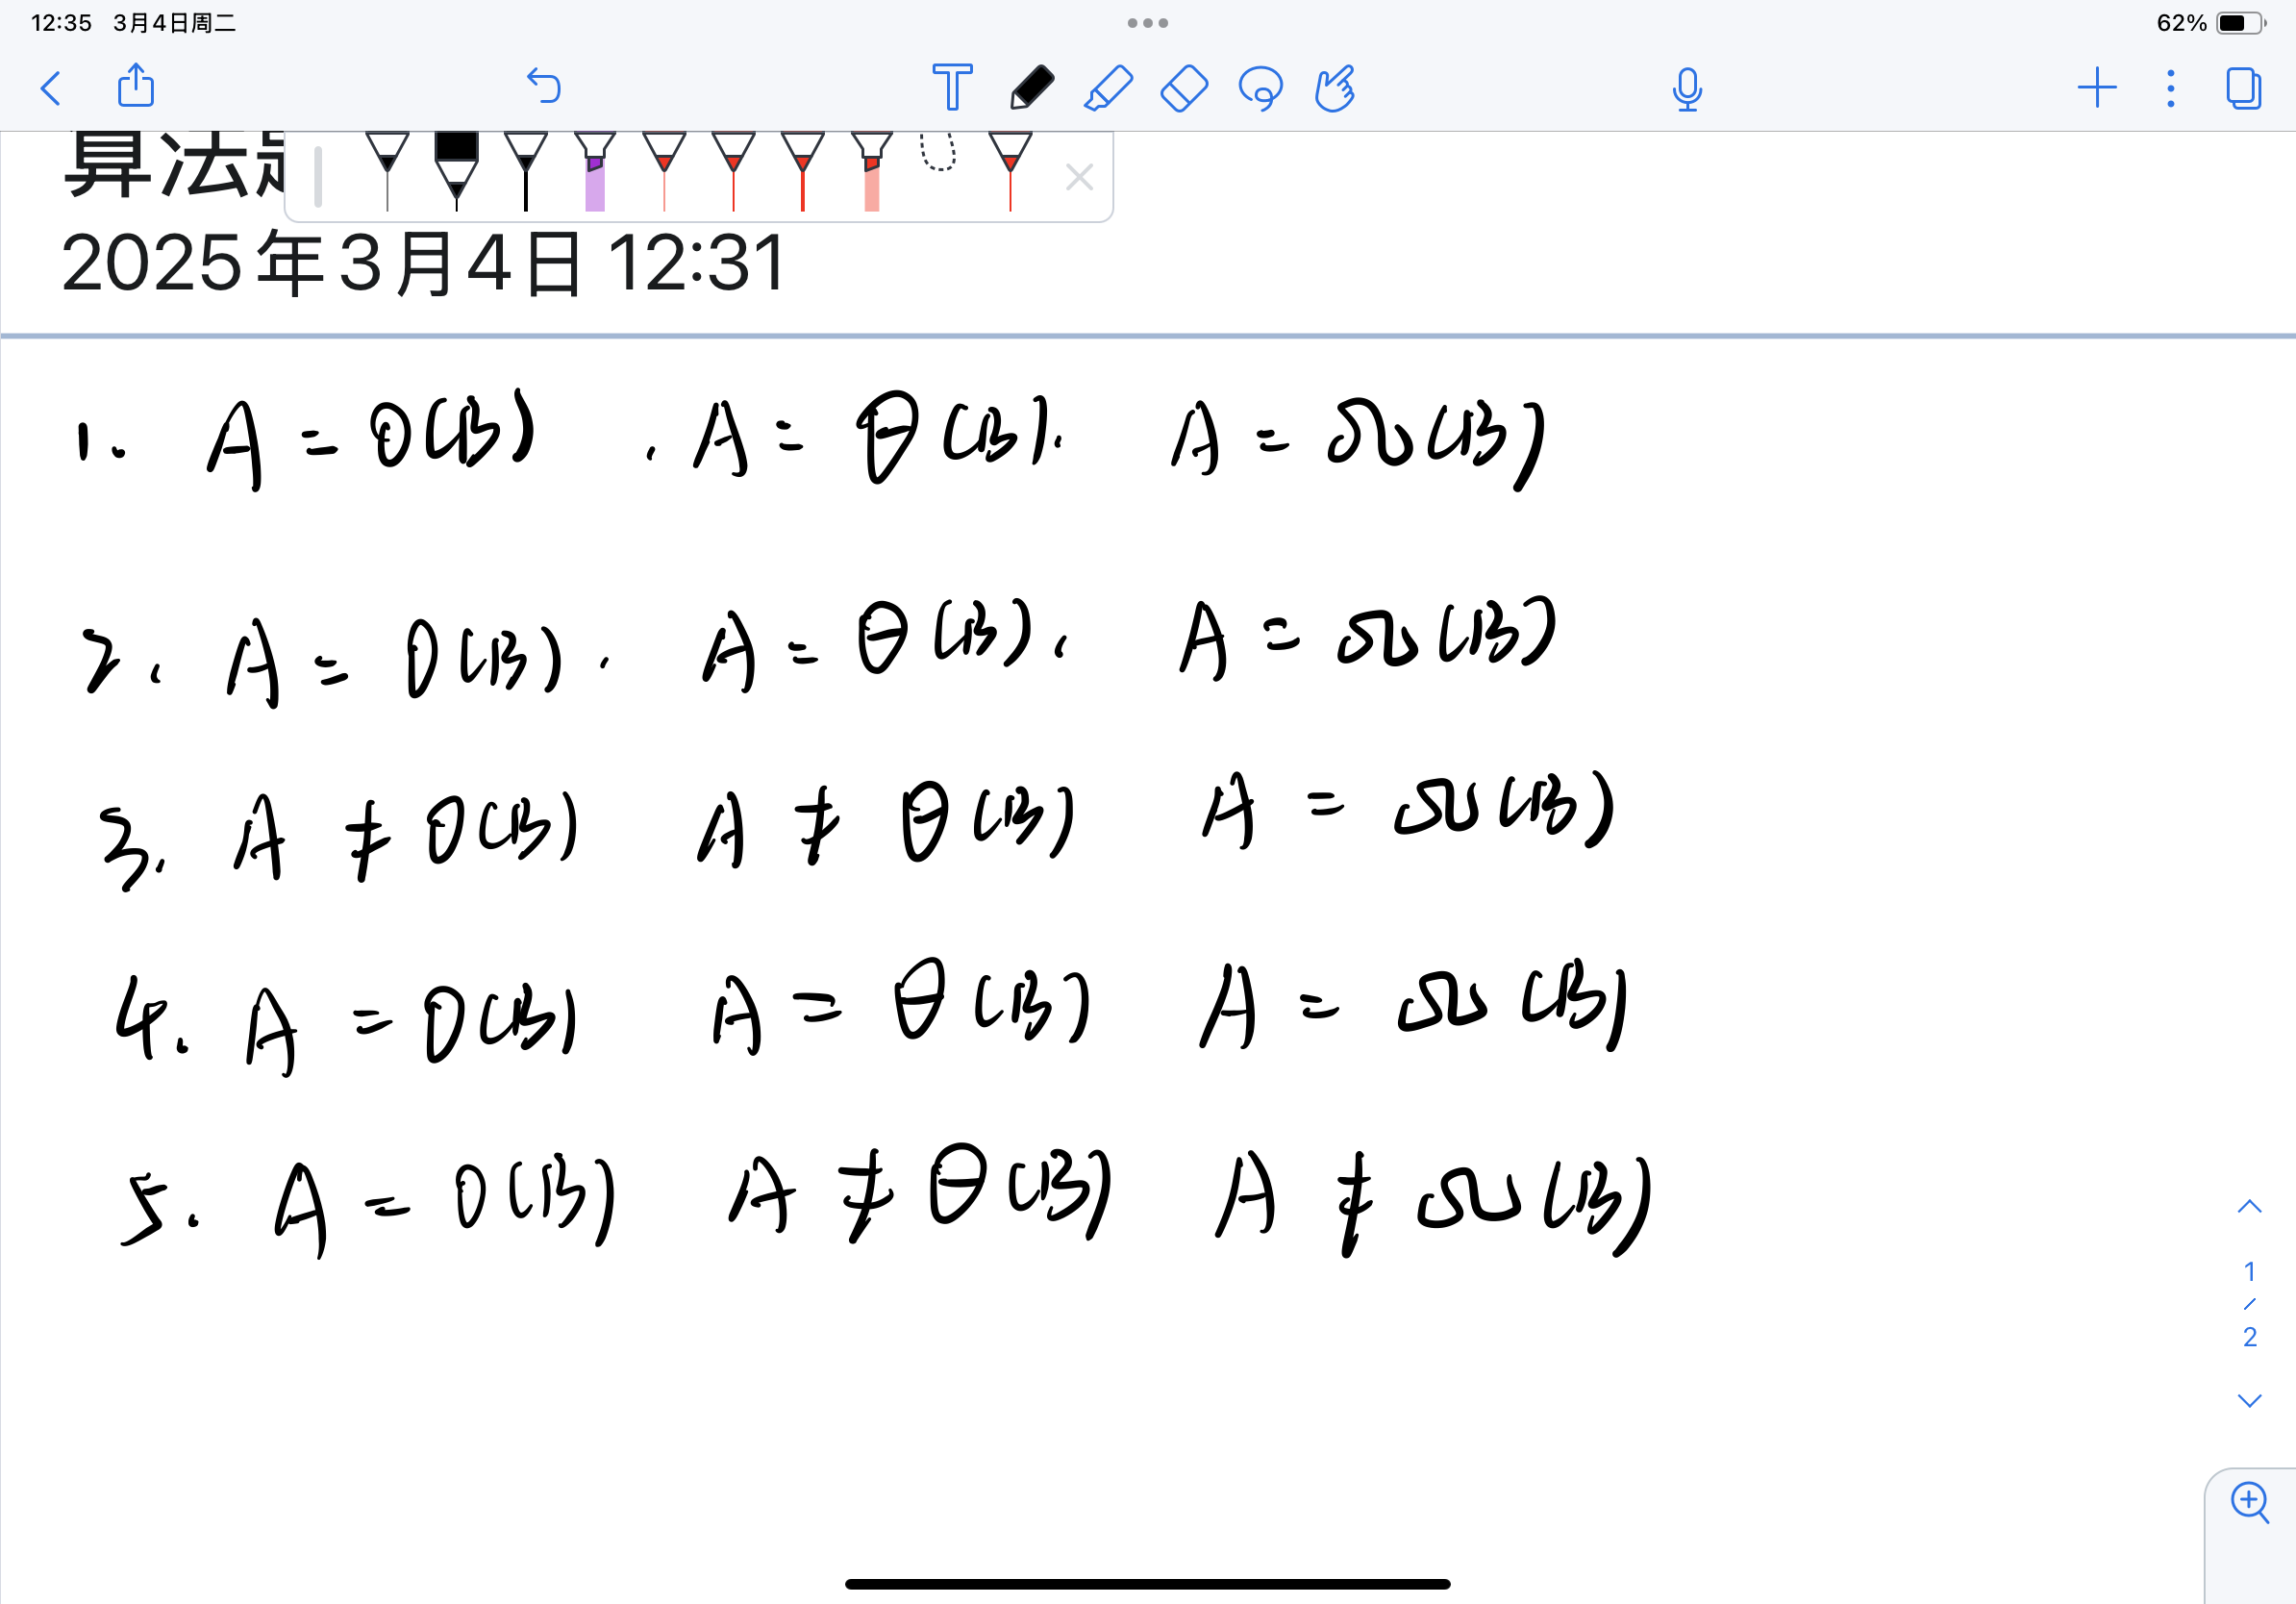 12:35 3月4日周二 62%
算法
2025年3月4日 12:31
1. A = O(B) . A = θ(B). A = Ω(B)
2. A = O(B). A = θ(B). A = Ω(B)
3. A ≠ O(B) A ≠ θ(B) A = Ω(B)
4. A = O(B) A = θ(B) A = Ω(B)
5. A = O(B) A ≠ θ(B) A ≠ Ω(B)
1
/
2